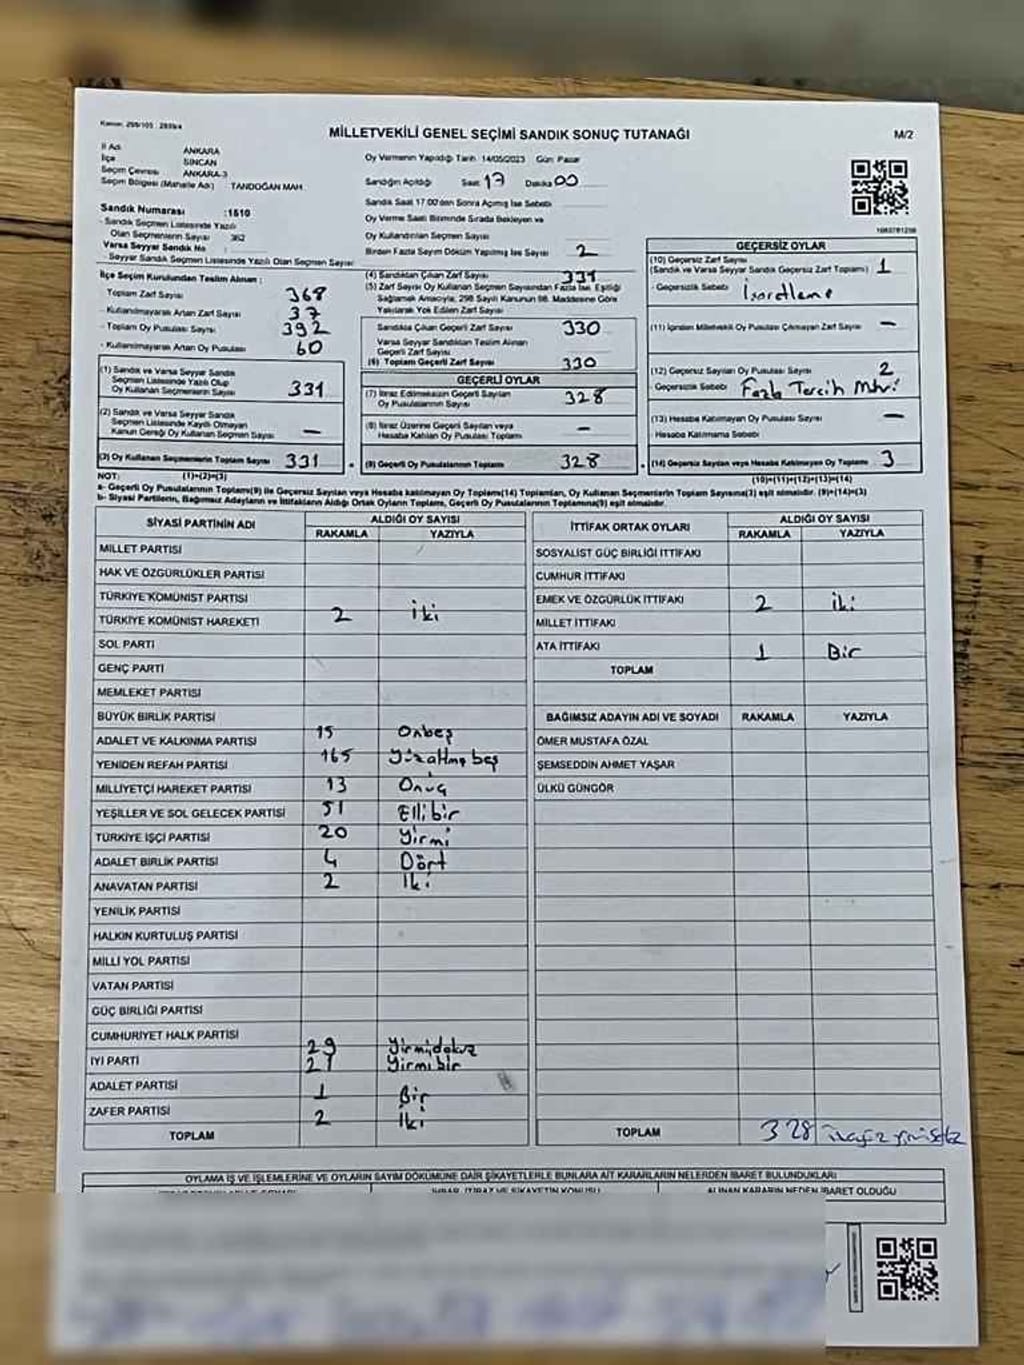 MİLLETVEKİLİ GENEL SEÇİMİ SANDIK SONUÇ TUTANAĞI
M/2
İl Adı ANKARA
İlçe SİNCAN
Seçim Çevresi ANKARA-3
Seçim Bölgesi (Mahalle Adı) TANDOĞAN MAH.
Sandık Numarası :1610
- Sandık Seçmen Listesinde Yazılı
Olan Seçmenlerin Sayısı 362
Varsa Seyyar Sandık No :
- Seyyar Sandık Seçmen Listesinde Yazılı Olan Seçmen Sayısı
Oy Vermenin Yapıldığı Tarih 14/05/2023 Gün Pazar
Sandığın Açıldığı Saat 17 Dakika 00
Sandık Saat 17:00'den Sonra Açılmış İse Sebebi
Oy Verme Saati Bitiminde Sırada Bekleyen ve
Oy Kullandırılan Seçmen Sayısı
Birden Fazla Sayım Döküm Yapılmış İse Sayısı 2
İlçe Seçim Kurulundan Teslim Alınan :
Toplam Zarf Sayısı 368
- Kullanılmayarak Artan Zarf Sayısı 37
- Toplam Oy Pusulası Sayısı 392
- Kullanılmayarak Artan Oy Pusulası 60
(1) Sandık ve Varsa Seyyar Sandık
Seçmen Listesinde Yazılı Olup
Oy Kullanan Seçmenlerin Sayısı 331
(2) Sandık ve Varsa Seyyar Sandık
Seçmen Listesinde Kayıtlı Olmayan
Kanun Gereği Oy Kullanan Seçmen Sayısı —
(3) Oy Kullanan Seçmenlerin Toplam Sayısı 331
(1)+(2)=(3)
(4) Sandıktan Çıkan Zarf Sayısı 331
(5) Zarf Sayısı Oy Kullanan Seçmen Sayısından Fazla İse, Eşitliği
Sağlamak Amacıyla, 298 Sayılı Kanunun 98. Maddesine Göre
Yakılarak Yok Edilen Zarf Sayısı
Sandıkta Çıkan Geçerli Zarf Sayısı 330
Varsa Seyyar Sandıktan Teslim Alınan
Geçerli Zarf Sayısı
(6) Toplam Geçerli Zarf Sayısı 330
GEÇERLİ OYLAR
(7) İtiraz Edilmeksizin Geçerli Sayılan
Oy Pusulalarının Sayısı 328
(8) İtiraz Üzerine Geçerli Sayılan veya
Hesaba Katılan Oy Pusulası Toplamı —
(9) Geçerli Oy Pusulalarının Toplamı 328
GEÇERSİZ OYLAR
(10) Geçersiz Zarf Sayısı
(Sandık ve Varsa Seyyar Sandık Geçersiz Zarf Toplamı) 1
- Geçersizlik Sebebi İşaretleme
(11) İçinden Milletvekili Oy Pusulası Çıkmayan Zarf Sayısı —
(12) Geçersiz Sayılan Oy Pusulası Sayısı 2
- Geçersizlik Sebebi Fazla Tercih Mührü
(13) Hesaba Katılmayan Oy Pusulası Sayısı —
- Hesaba Katılmama Sebebi
(14) Geçersiz Sayılan veya Hesaba Katılmayan Oy Toplamı 3
(10)+(11)+(12)+(13)=(14)
NOT:
a- Geçerli Oy Pusulalarının Toplamı(9) ile Geçersiz Sayılan veya Hesaba katılmayan Oy Toplamı(14) Toplamları, Oy Kullanan Seçmenlerin Toplam Sayısına(3) eşit olmalıdır. (9)+(14)=(3)
b- Siyasi Partilerin, Bağımsız Adayların ve İttifakların Aldığı Ortak Oyların Toplamı, Geçerli Oy Pusulalarının Toplamına(9) eşit olmalıdır.
SİYASİ PARTİNİN ADI ALDIĞI OY SAYISI
RAKAMLA YAZIYLA
MİLLET PARTİSİ
HAK VE ÖZGÜRLÜKLER PARTİSİ
TÜRKİYE KOMÜNİST PARTİSİ
TÜRKİYE KOMÜNİST HAREKETİ 2 iki
SOL PARTİ
GENÇ PARTİ
MEMLEKET PARTİSİ
BÜYÜK BİRLİK PARTİSİ
ADALET VE KALKINMA PARTİSİ 15 Onbeş
YENİDEN REFAH PARTİSİ 165 Yüzaltmış beş
MİLLİYETÇİ HAREKET PARTİSİ 13 Onüç
YEŞİLLER VE SOL GELECEK PARTİSİ 51 Ellibir
TÜRKİYE İŞÇİ PARTİSİ 20 Yirmi
ADALET BİRLİK PARTİSİ 4 Dört
ANAVATAN PARTİSİ 2 İki
YENİLİK PARTİSİ
HALKIN KURTULUŞ PARTİSİ
MİLLİ YOL PARTİSİ
VATAN PARTİSİ
GÜÇ BİRLİĞİ PARTİSİ
CUMHURİYET HALK PARTİSİ
İYİ PARTİ 29 Yirmidokuz
21 Yirmibir
ADALET PARTİSİ 1 Bir
ZAFER PARTİSİ 2 İki
TOPLAM
İTTİFAK ORTAK OYLARI ALDIĞI OY SAYISI
RAKAMLA YAZIYLA
SOSYALİST GÜÇ BİRLİĞİ İTTİFAKI
CUMHUR İTTİFAKI
EMEK VE ÖZGÜRLÜK İTTİFAKI 2 iki
MİLLET İTTİFAKI
ATA İTTİFAKI 1 Bir
TOPLAM
BAĞIMSIZ ADAYIN ADI VE SOYADI RAKAMLA YAZIYLA
ÖMER MUSTAFA ÖZAL
ŞEMSEDDİN AHMET YAŞAR
ÜLKÜ GÜNGÖR
TOPLAM 328
OYLAMA İŞ VE İŞLEMLERİNE VE OYLARIN SAYIM DÖKÜMÜNE DAİR ŞİKAYETLERLE BUNLARA AİT KARARLARIN NELERDEN İBARET BULUNDUKLARI
İHBAR, İTİRAZ VE ŞİKAYETİN KONUSU ALINAN KARARIN NEDEN İBARET OLDUĞU